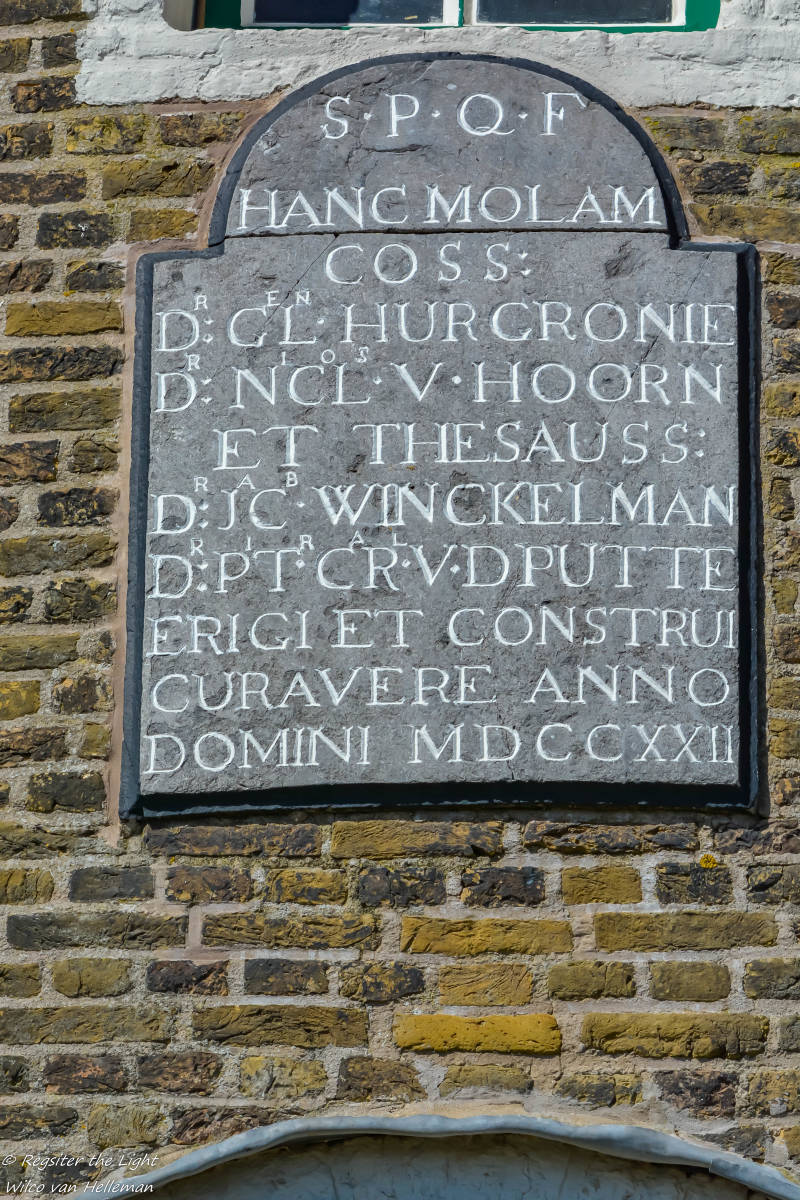 S·P·Q·F
HANC MOLAM
COSS:
D:ᴿ GL:ᴱᴺ HURGRONIE
D:ᴿ NCL·ᴵᴼˢ V·HOORN
ET THESAUSS:
D:ᴿ JC·ᴬᴮ WINCKELMAN
D:ᴿ PT:ᴵᴿ CR·ᴬᴸ V·DPUTTE
ERIGI ET CONSTRUI
CURAVERE ANNO
DOMINI MDCCXXII
© Regsiter the Light
Wilco van Helleman